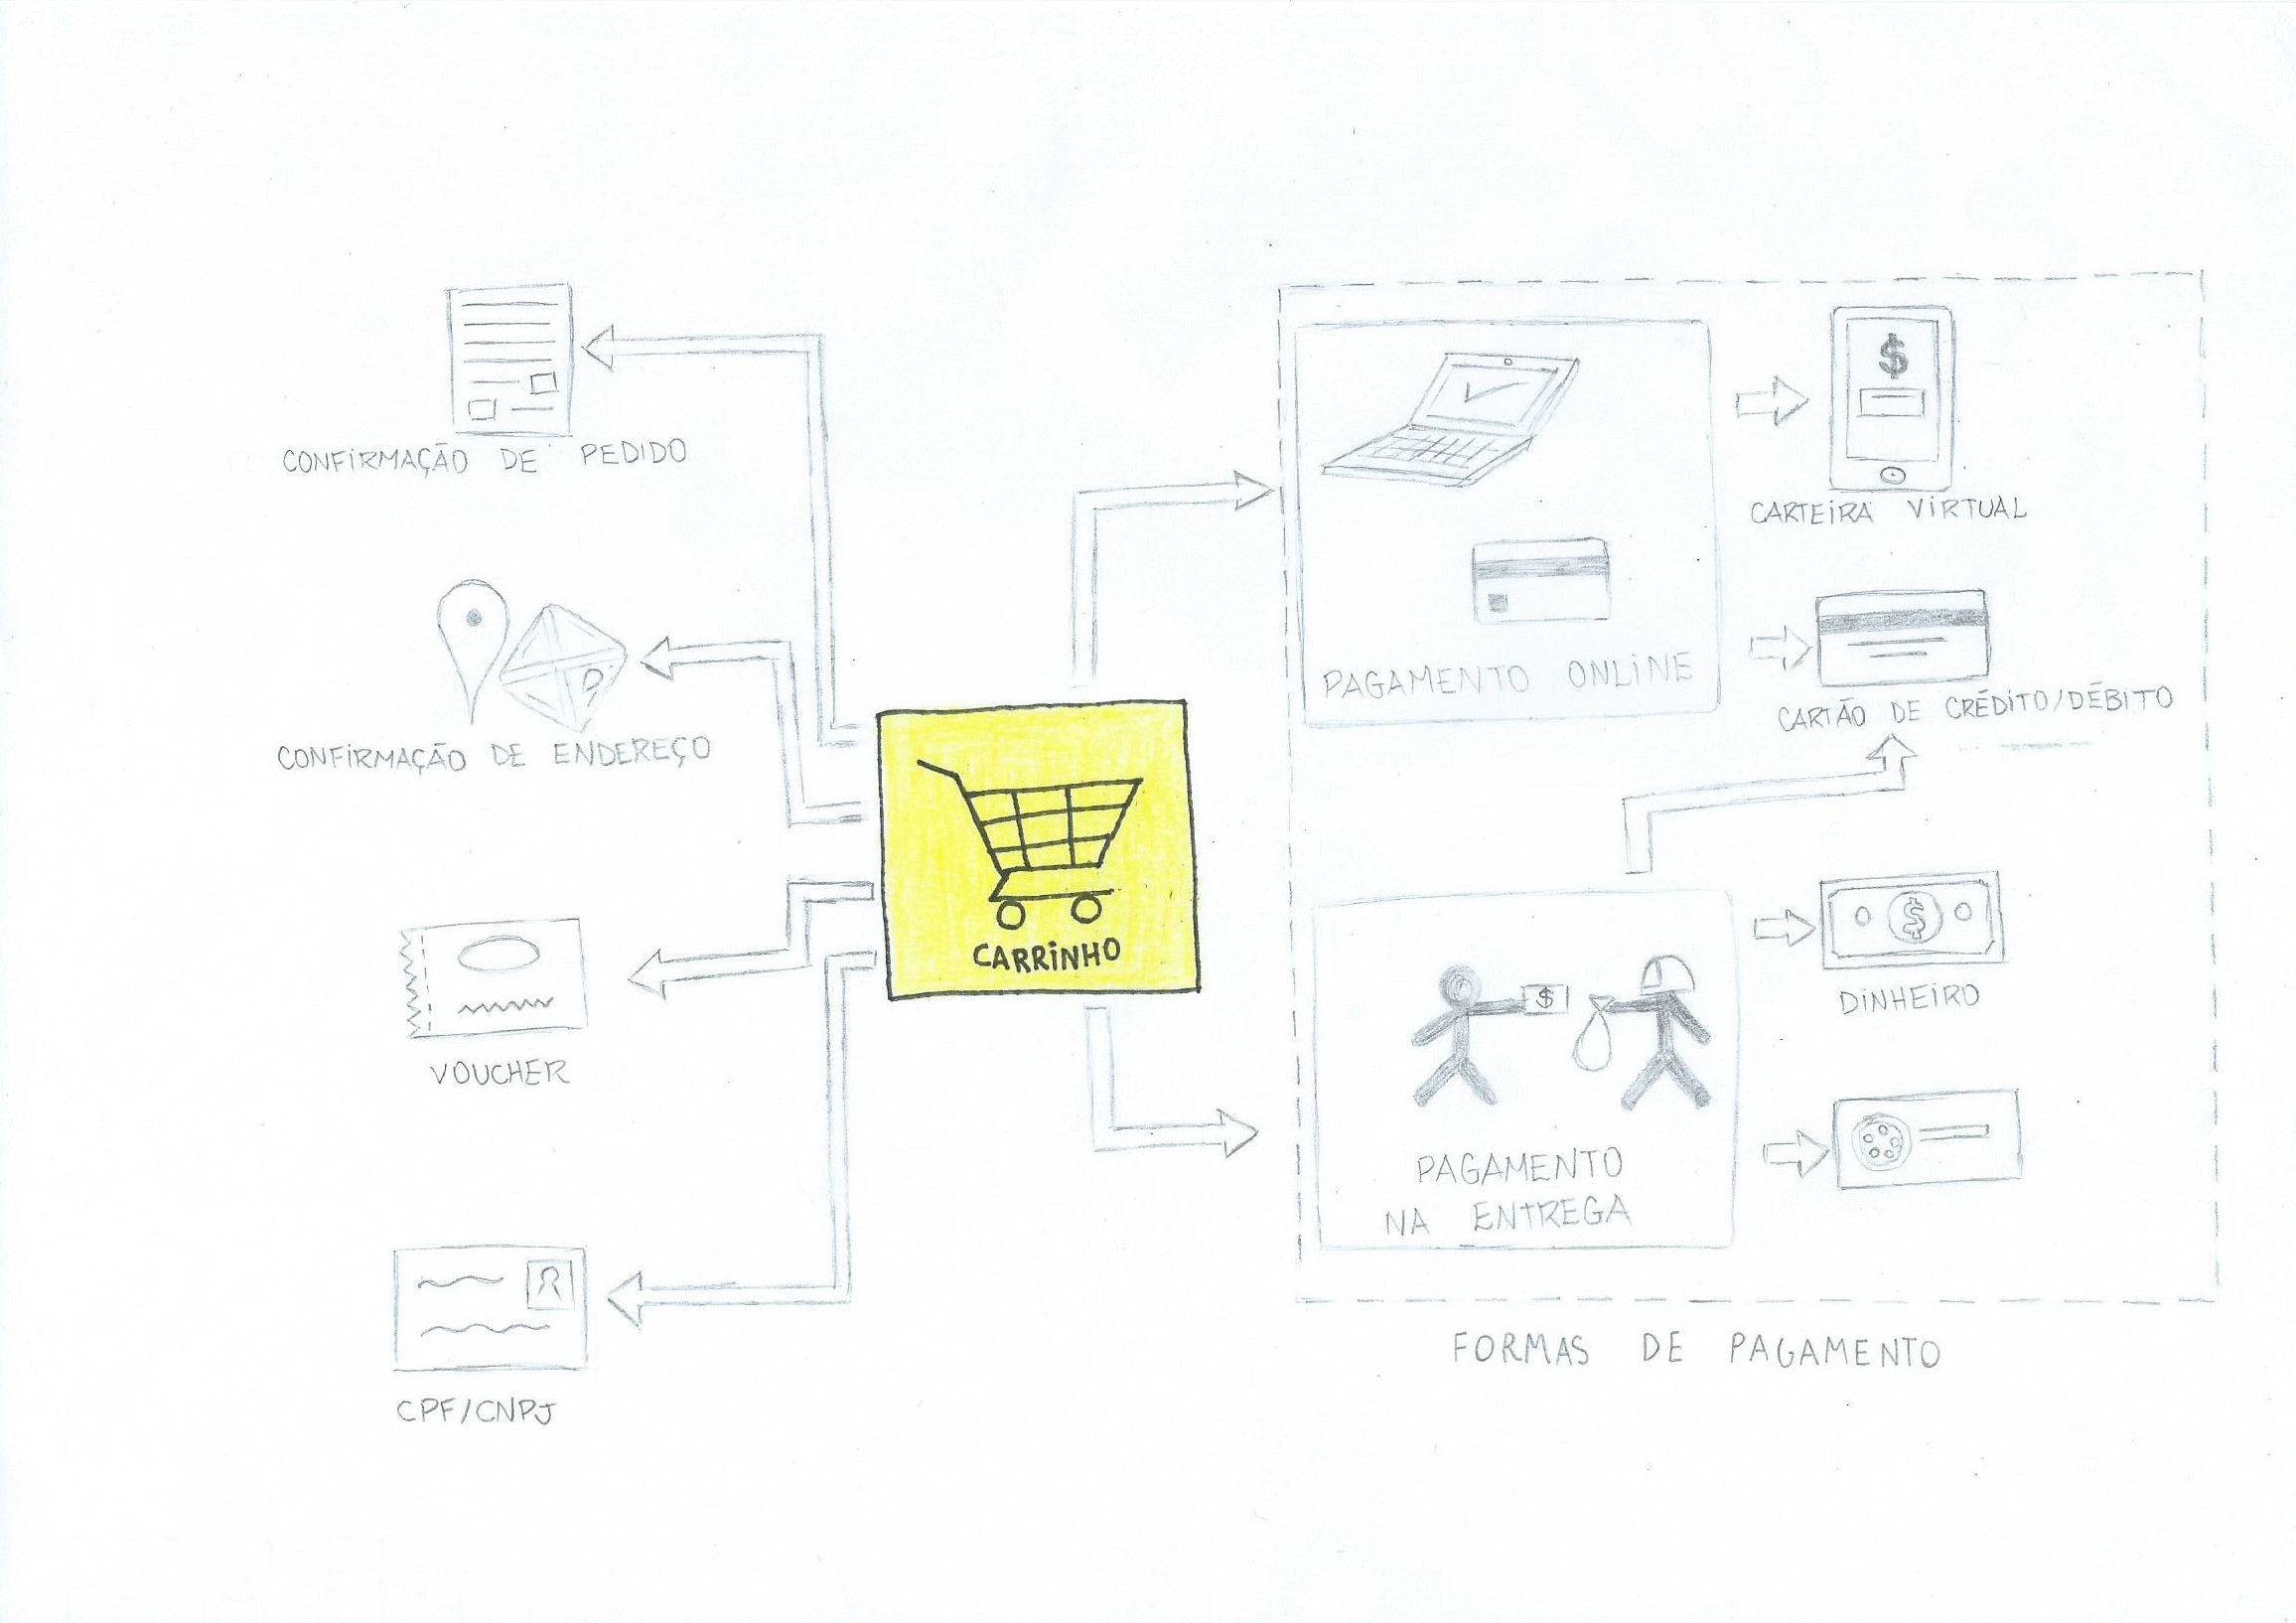 CONFIRMAÇÃO DE PEDIDO
CONFIRMAÇÃO DE ENDEREÇO
VOUCHER
CPF/CNPJ
CARRINHO
PAGAMENTO ONLINE
$
CARTEIRA VIRTUAL
CARTÃO DE CRÉDITO/DÉBITO
$
PAGAMENTO
NA ENTREGA
$
DINHEIRO
FORMAS DE PAGAMENTO